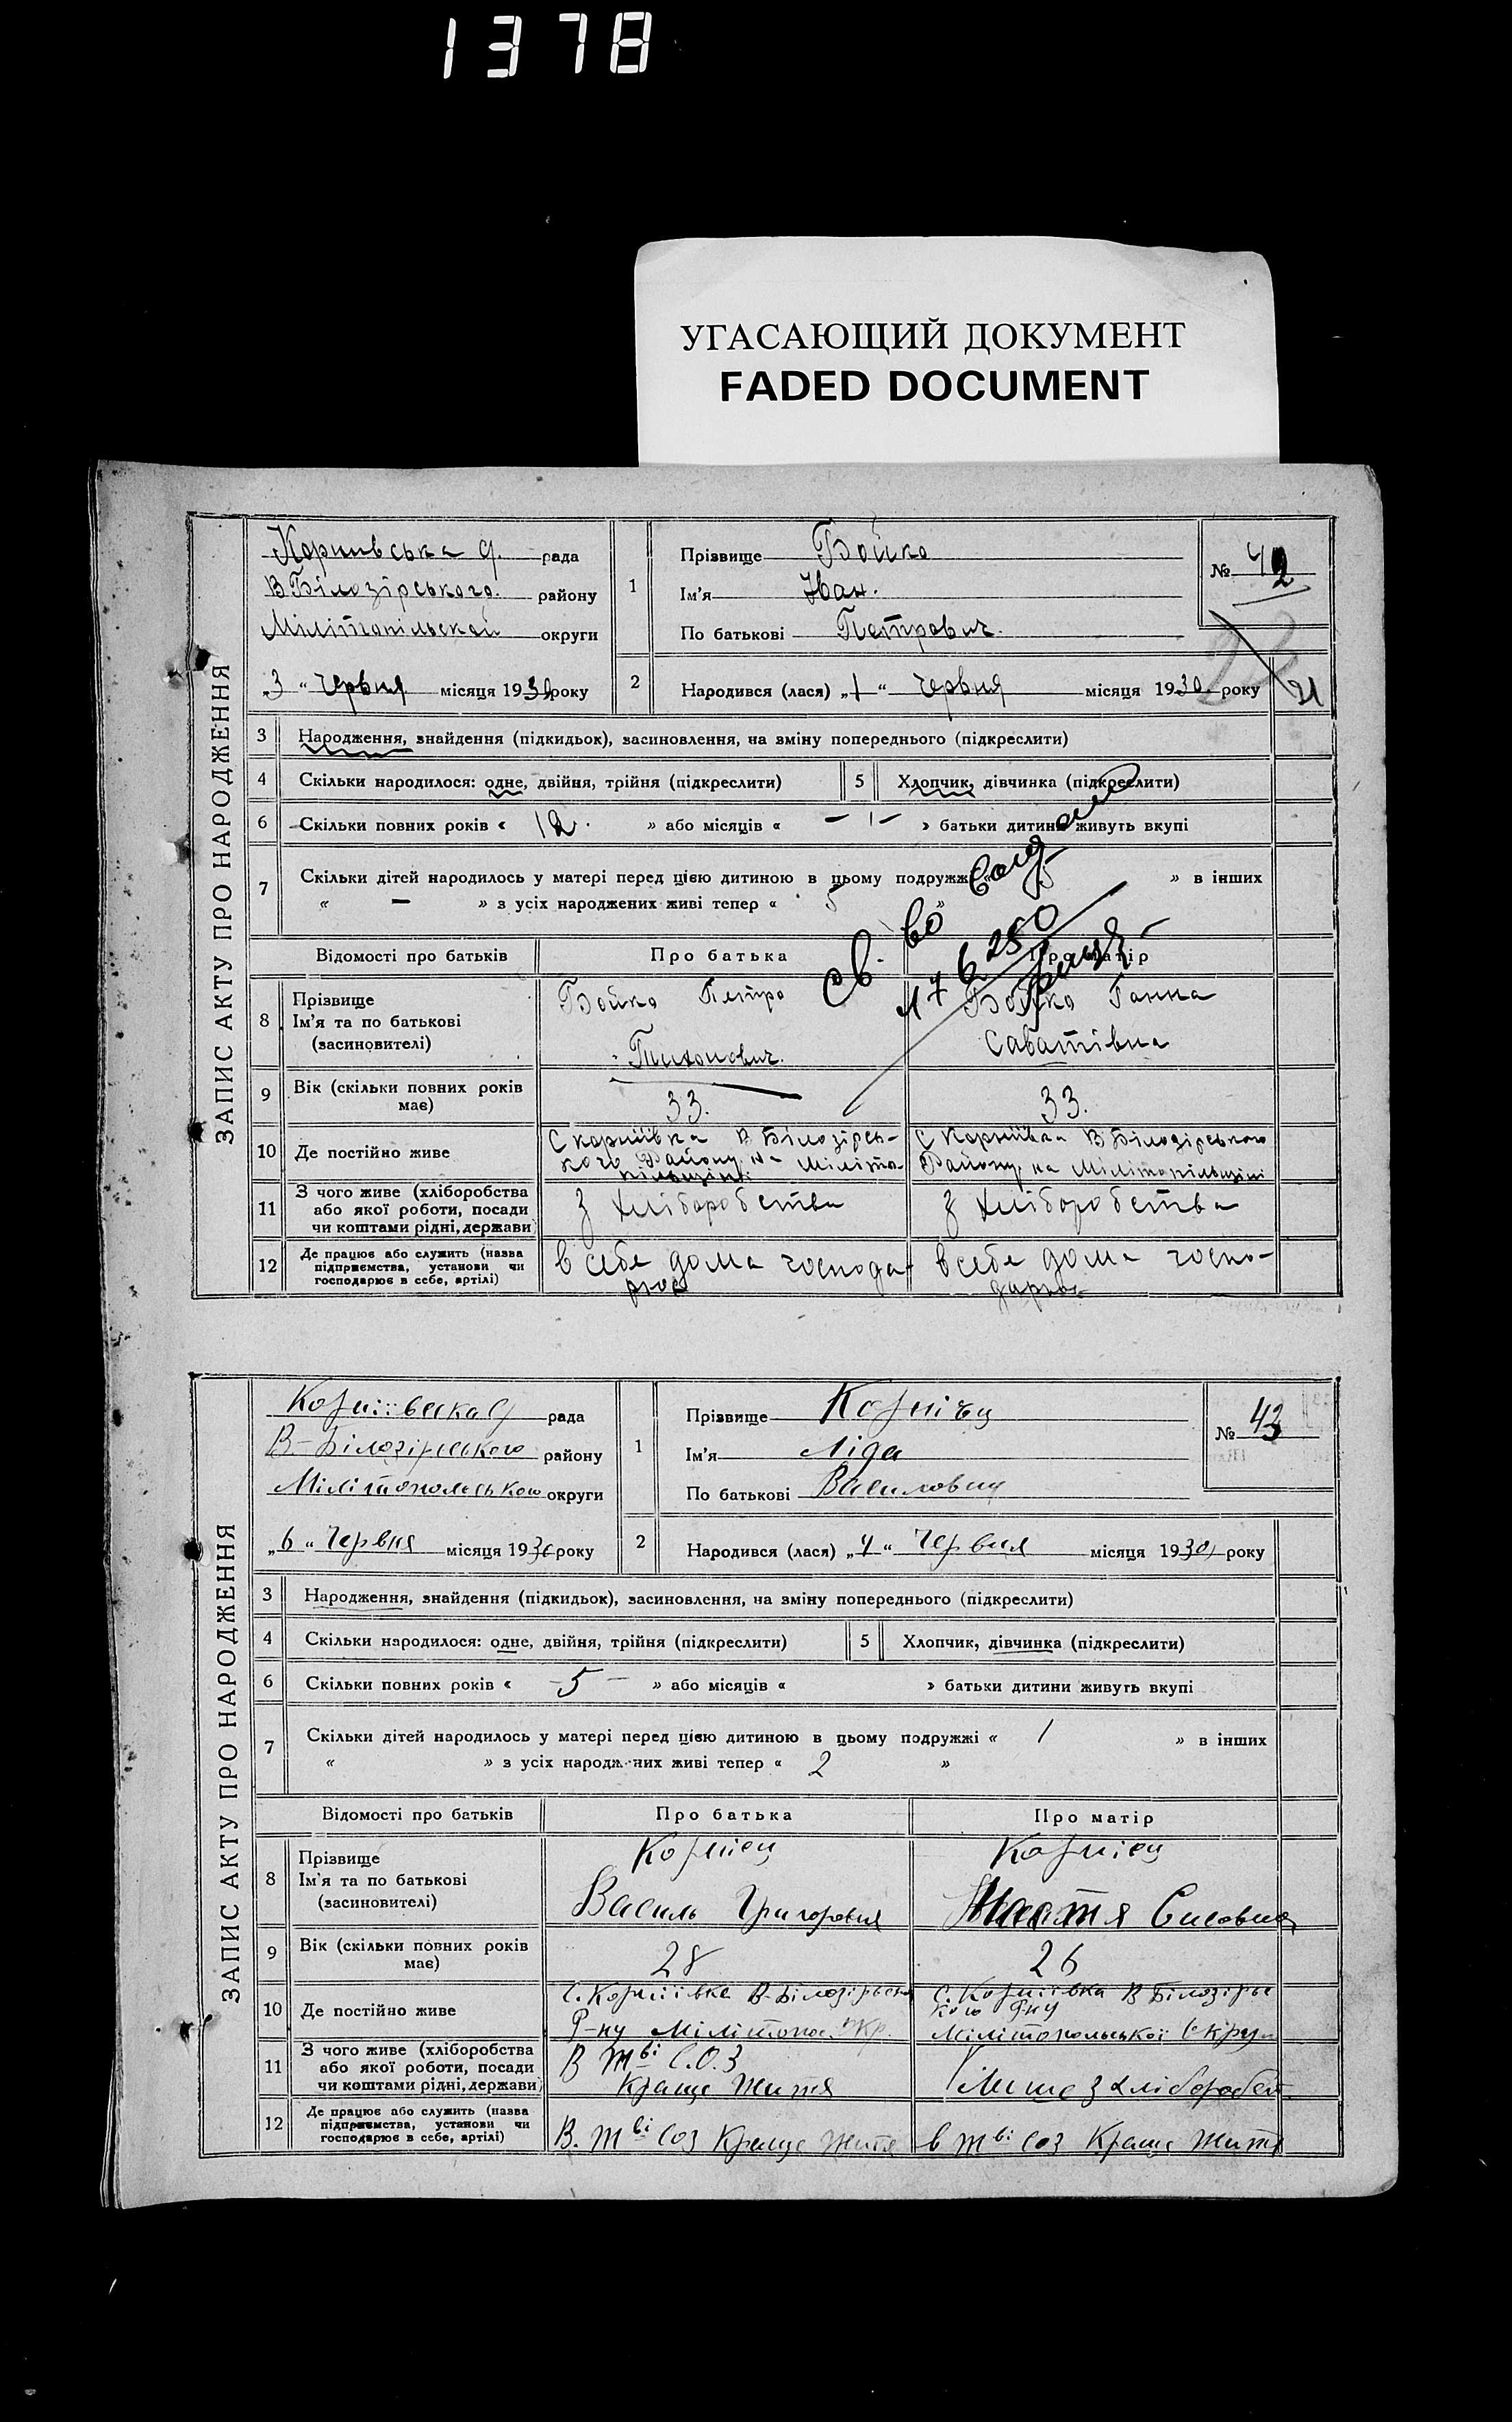 1378
УГАСАЮЩИЙ ДОКУМЕНТ
FADED DOCUMENT
ЗАПИС АКТУ ПРО НАРОДЖЕННЯ
Корнівська С. рада
В Білозірського. району
Мілітопільскої округи
„3“ Червня місяця 1930 року
1 Прізвище Бойко
Ім'я Іван.
По батькові Петрович.
№ 42
2 Народився (лася) „1“ Червня місяця 1930 року
21
3 Народження, знайдення (підкидьок), засиновлення, на зміну попереднього (підкреслити)
4 Скільки народилося: одне, двійня, трійня (підкреслити) 5 Хлопчик, дівчинка (підкреслити)
6 Скільки повних років « 12. » або місяців « – 1 – » батьки дитини живуть вкупі
7 Скільки дітей народилось у матері перед цією дитиною в цьому подружжі « 5 » в інших
« – » з усіх народжених живі тепер « 5 »
св. во
Відомості про батьків Про батька Про матір
8 Прізвище
Ім'я та по батькові
(засиновителі)
Бойко Петро
Тихонович.
Бойко Ганна
Саватівна
9 Вік (скільки повних років
має)
33.
33.
10 Де постійно живе
С Корніївка В Білозірсь-
кого Району на Міліто-
пільщіні
С Корніївка В Білозірського
Району на Мілітопільщіні
11 З чого живе (хліборобства
або якої роботи, посади
чи коштами рідні, держави)
З хліборобства
З хліборобства
12 Де працює або служить (назва
підприємства, установи чи
господарює в себе, артілі)
в себе дома господа-
рює
в себе дома госпо-
дарює
ЗАПИС АКТУ ПРО НАРОДЖЕННЯ
Корніївска С рада
В-Білозірського району
Мілітопольського округи
„6“ Червня місяця 1930 року
1 Прізвище Корнієц
Ім'я Ліда
По батькові Василовна
№ 43
2 Народився (лася) „4“ Червня місяця 1930 року
3 Народження, знайдення (підкидьок), засиновлення, на зміну попереднього (підкреслити)
4 Скільки народилося: одне, двійня, трійня (підкреслити) 5 Хлопчик, дівчинка (підкреслити)
6 Скільки повних років « –5– » або місяців « » батьки дитини живуть вкупі
7 Скільки дітей народилось у матері перед цією дитиною в цьому подружжі « 1 » в інших
« » з усіх народжених живі тепер « 2 »
Відомості про батьків Про батька Про матір
8 Прізвище
Ім'я та по батькові
(засиновителі)
Корнієц
Василь Григоровия
Корнієц
Настя Сисовна
9 Вік (скільки повних років
має)
28
26
10 Де постійно живе
С. Корніївка В-Білозірьск
Р-ну Мілітопол. Окр.
С. Корніївка В Білозірьс
кого Рну
Мілітопольської Округи
11 З чого живе (хліборобства
або якої роботи, посади
чи коштами рідні, держави)
В Тві С.О.З
Краще Життя
Лише З хлібороб
12 Де працює або служить (назва
підприємства, установи чи
господарює в себе, артілі)
В. Тві Соз Краще Життя
в Тві Соз Краще Життя